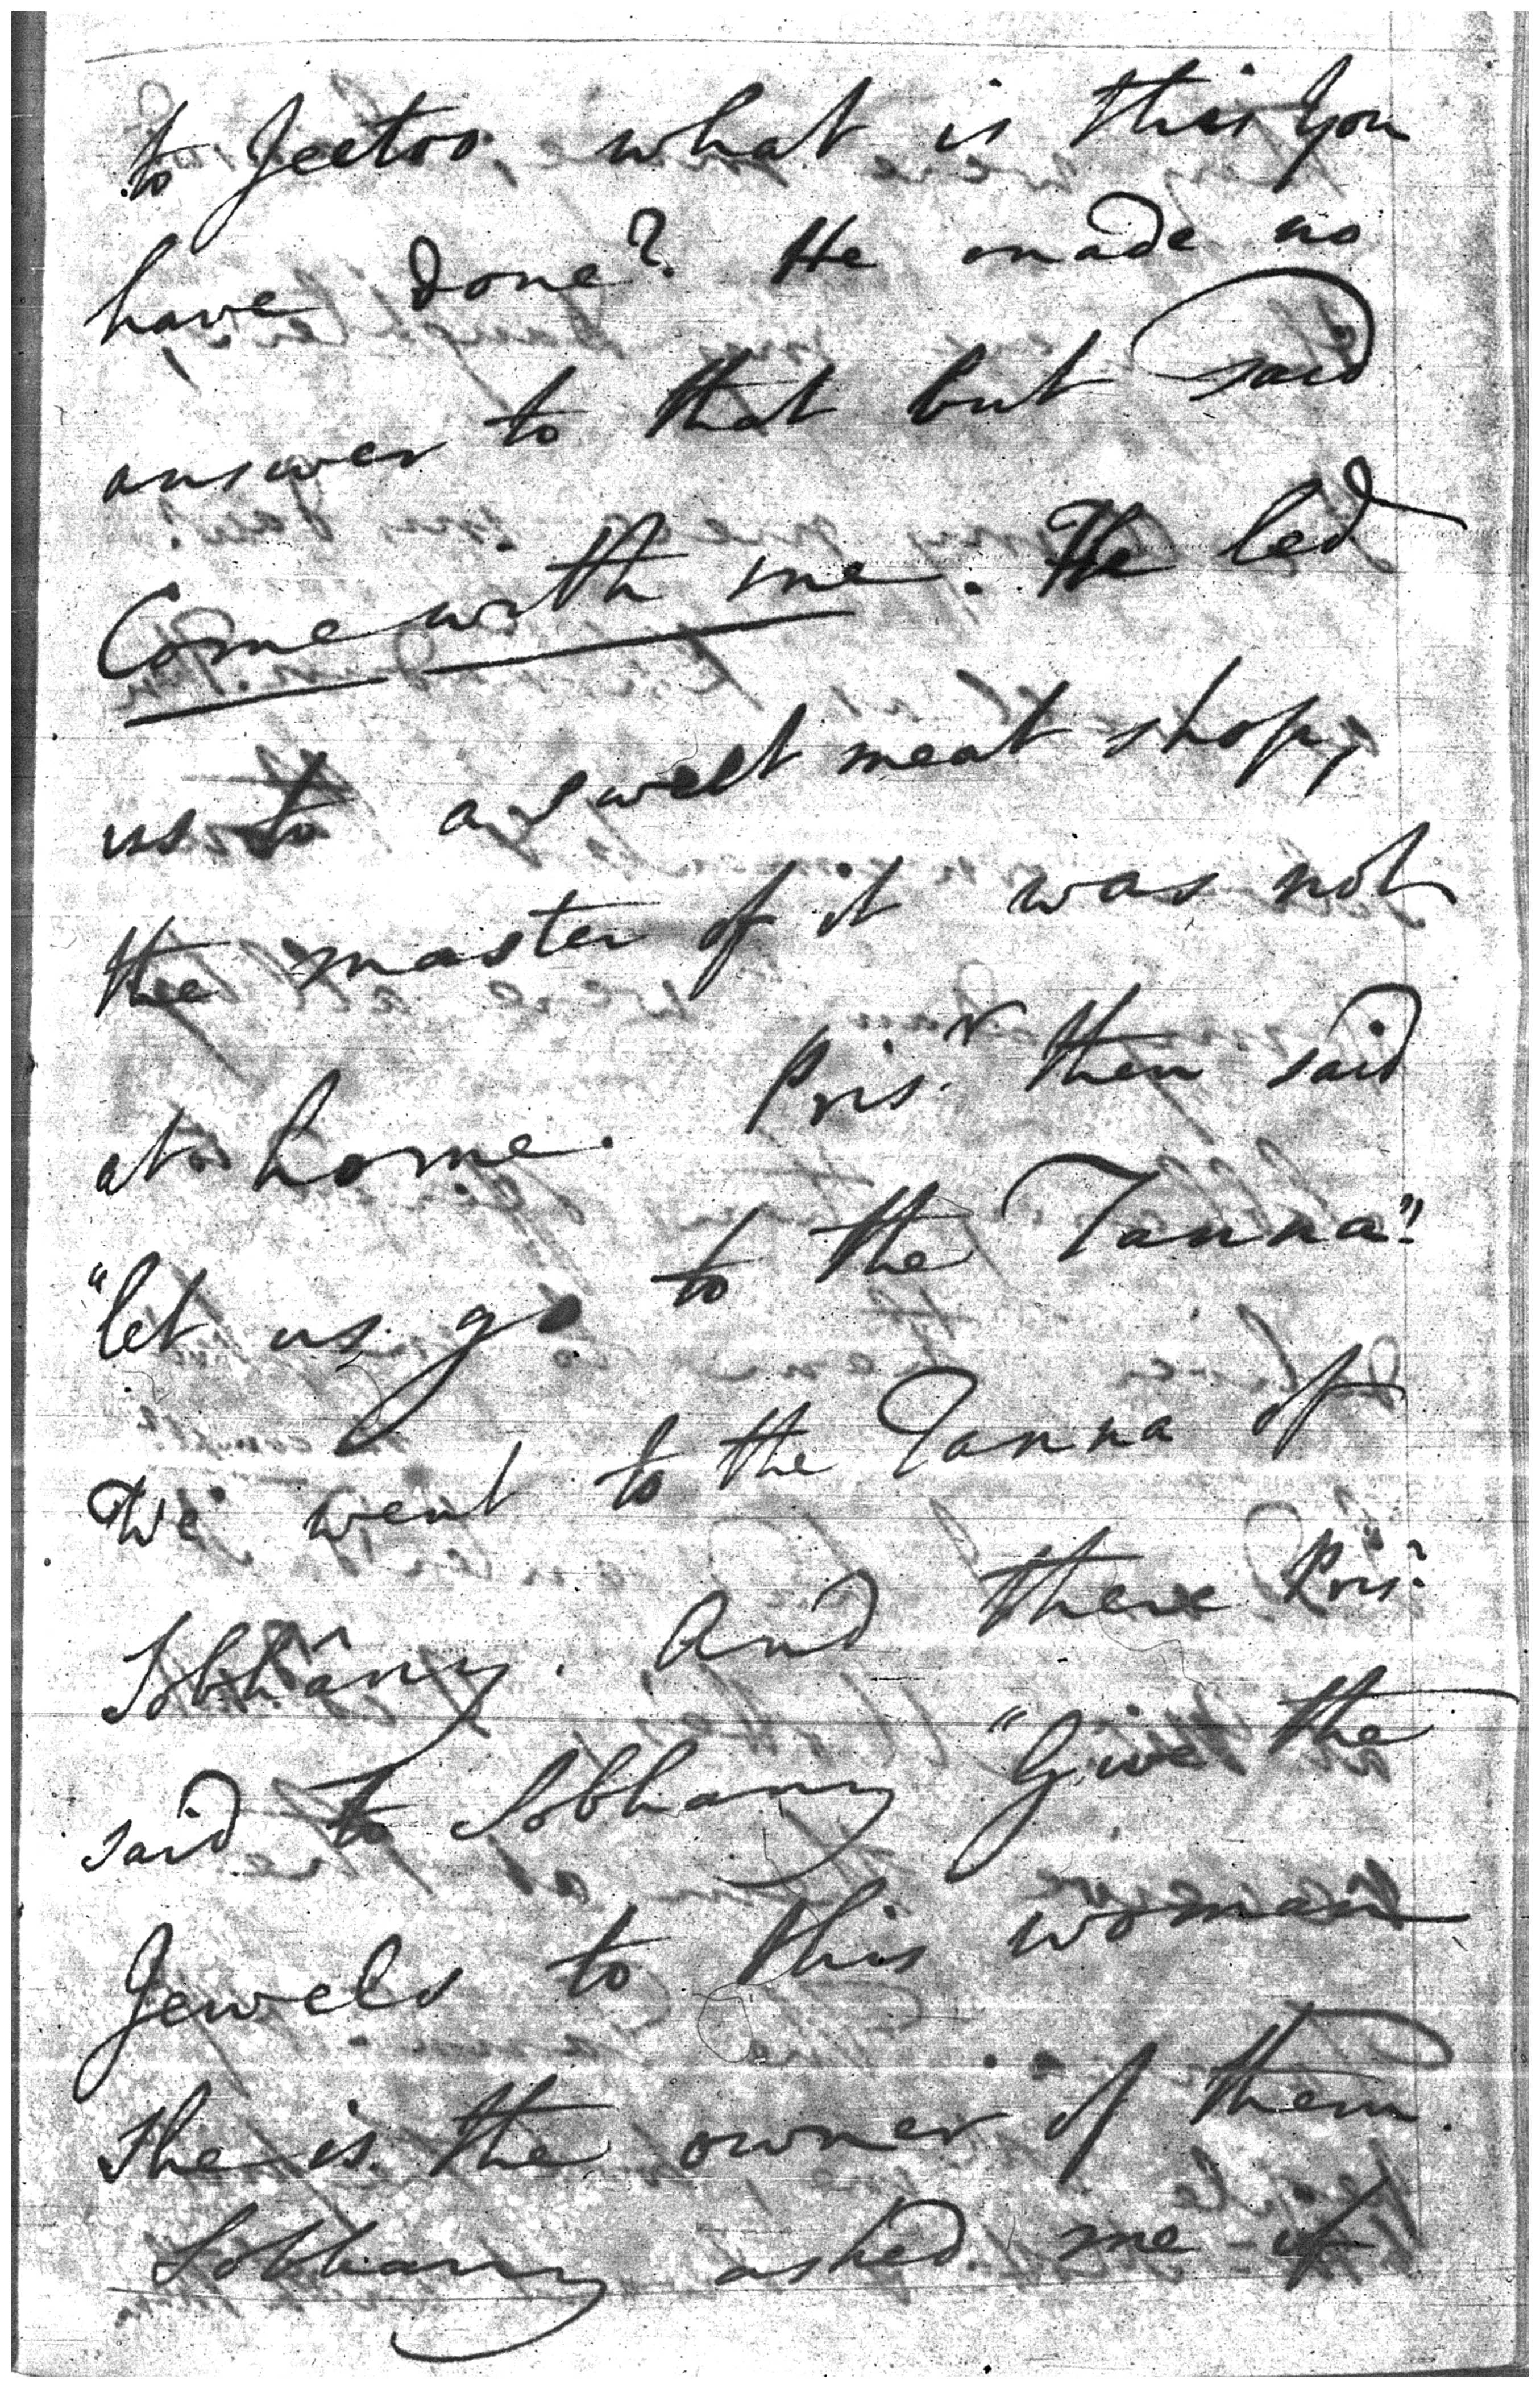 to Jeetoo what is this you
have done? He made no
answer to that but said
Come with me. He led
us to a sweet meat shop,
the master of it was not
at home. Prisr then said
"let us go to the Tanna"!
We went to the Tanna of
Sobhany. And there Prisr
said to Sobhany "Give the
Jewels to this woman
She is the owner of them.
Sobhany asked me if